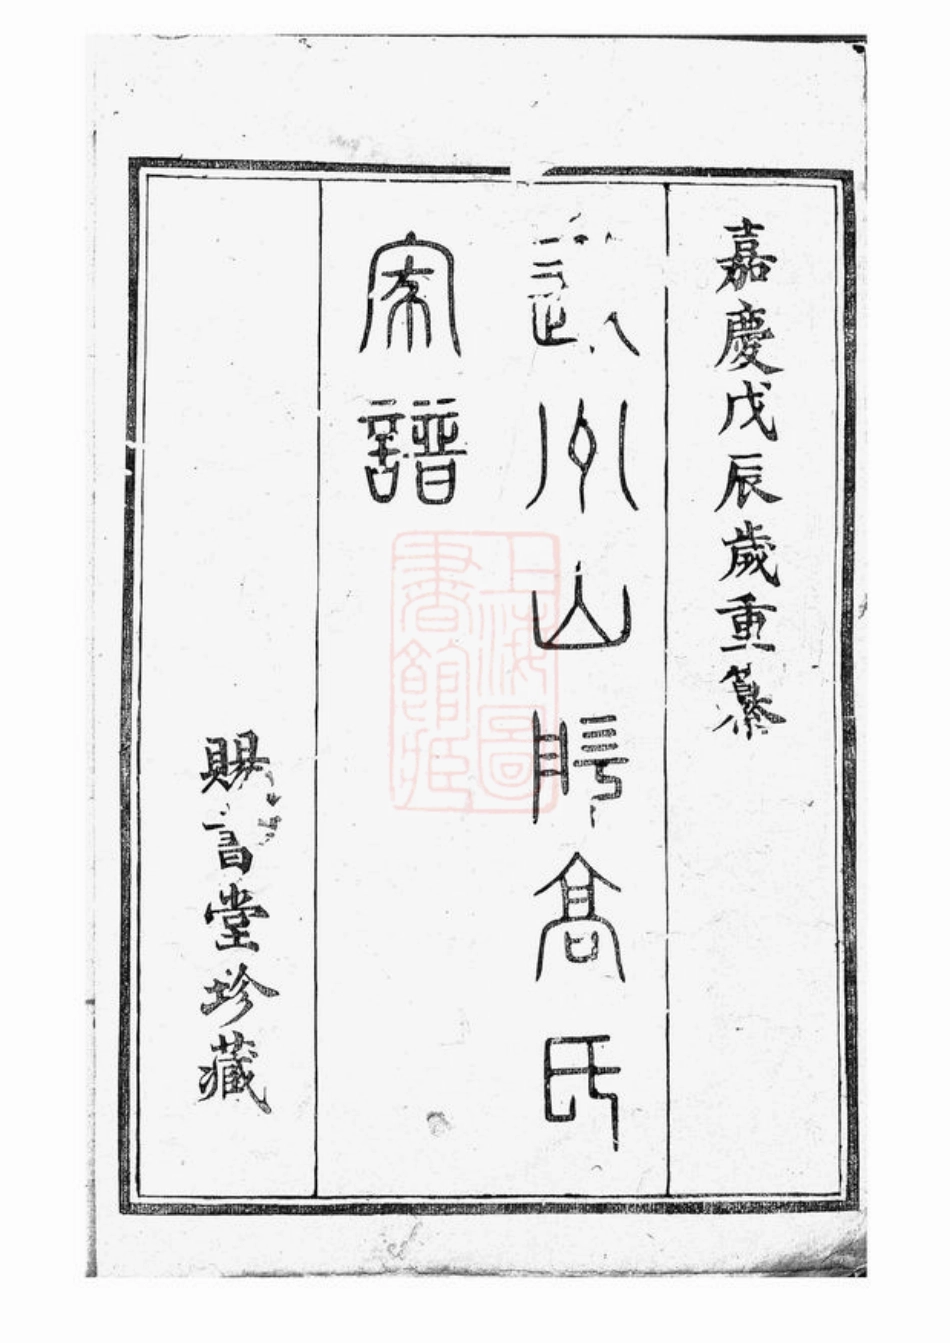 嘉慶戊辰歲重纂
州山高氏
家譜
賜書堂珍藏
上海圖
書館藏